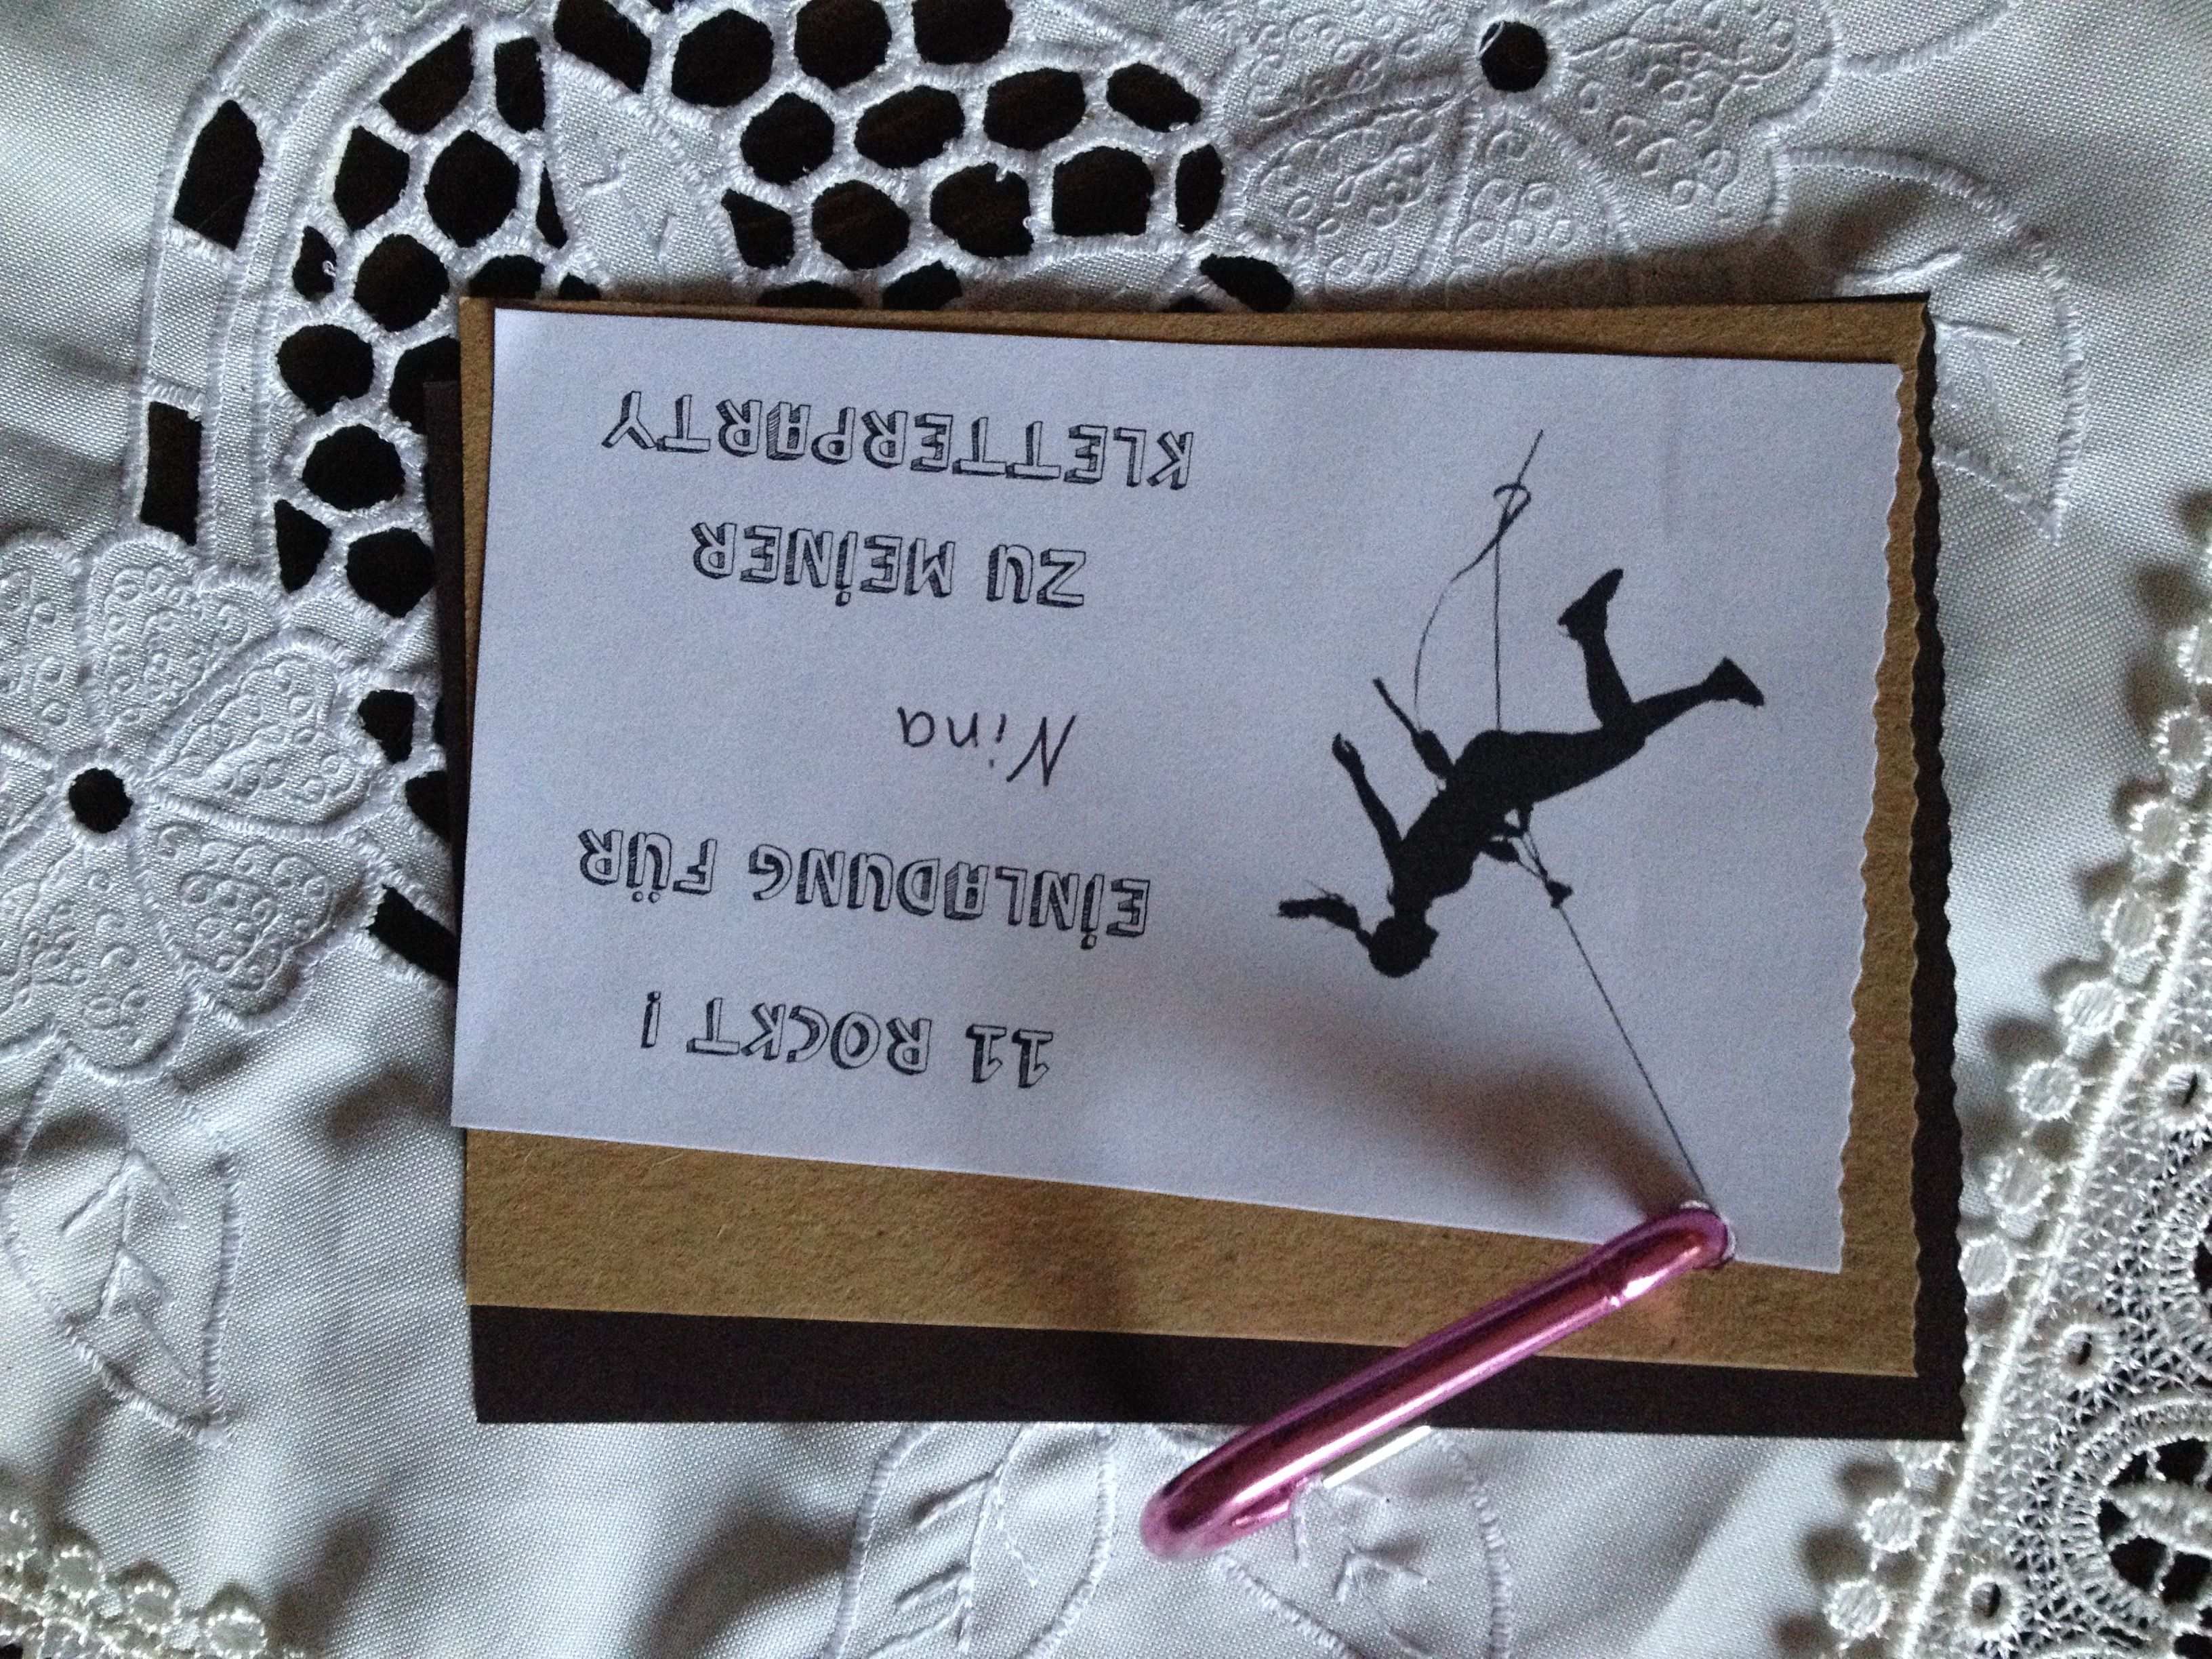 11 ROCKT !
EINLADUNG FÜR
Nina
ZU MEINER
KLETTERPARTY